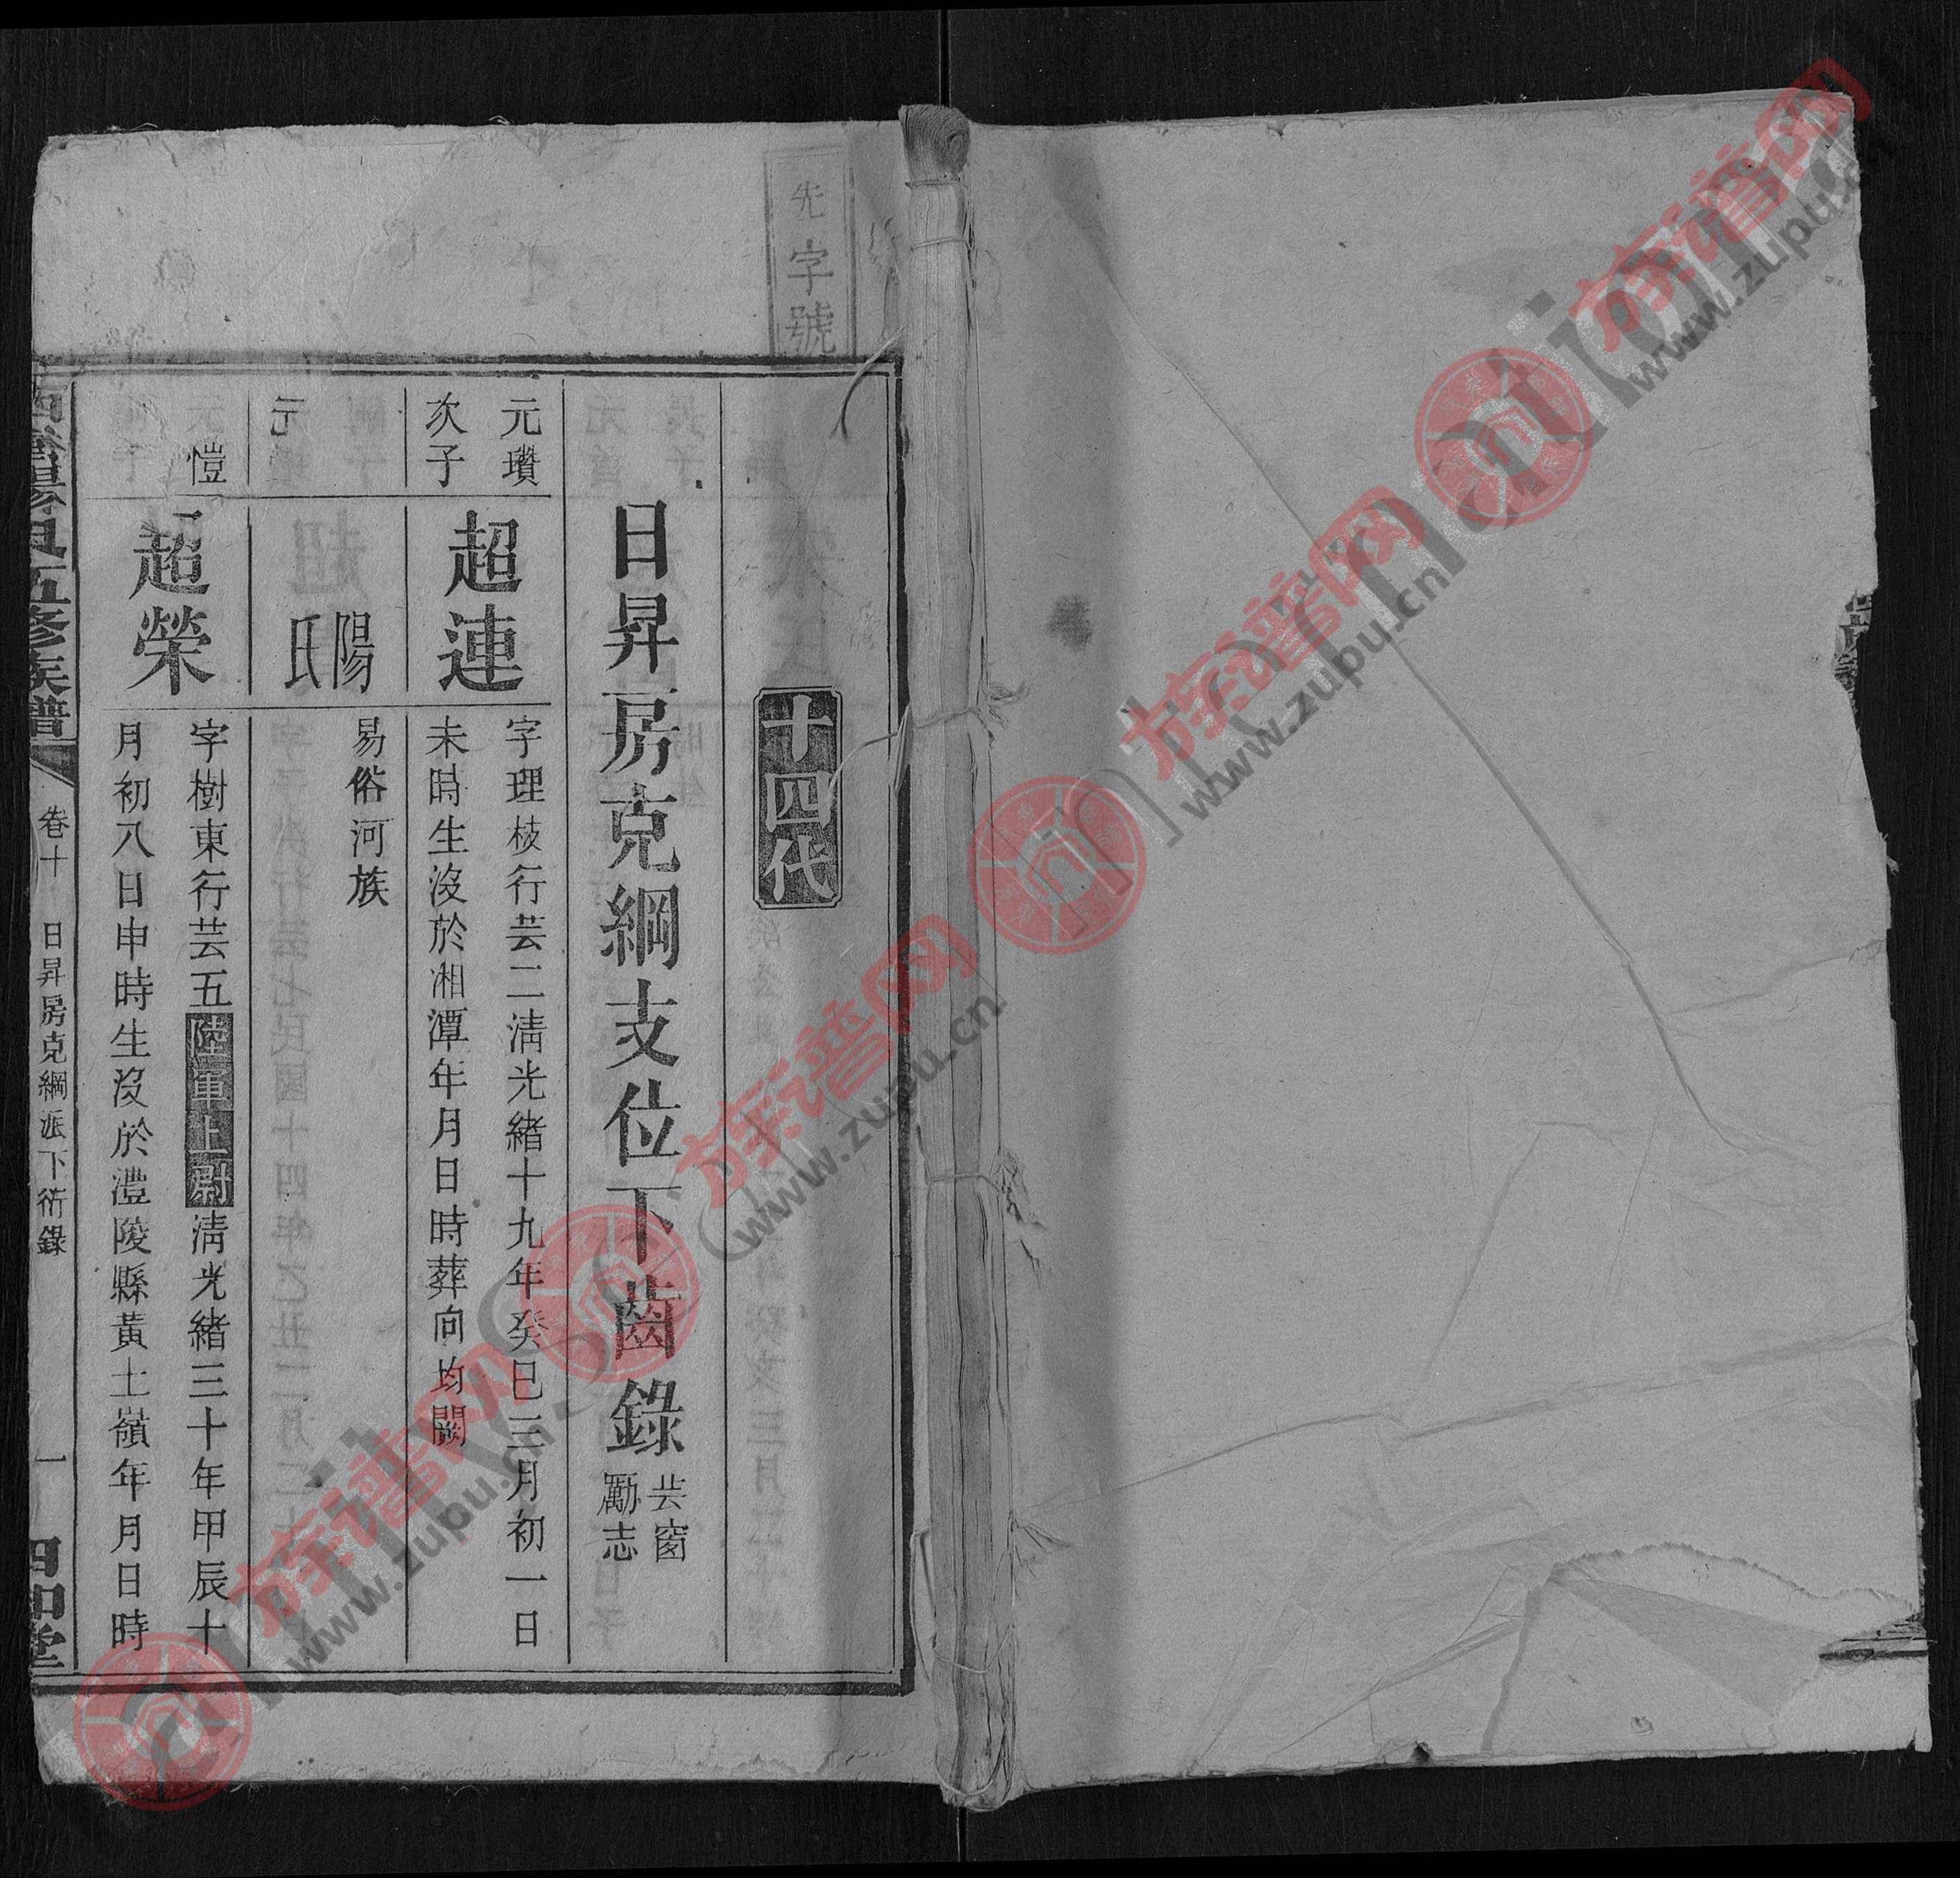 先字號
十四代
日昇房克綱支位下齒錄 芸窗 勵志
元瓚
次子
超連
字理枝行芸二淸光緒十九年癸巳三月初一日
未時生沒於湘潭年月日時葬向均闕
陽氏
易俗河族
愷
超榮
字樹東行芸五陸軍上尉淸光緒三十年甲辰十
月初八日申時生沒於澧陵縣黃土嶺年月日時
五修族譜
卷十
日昇房克綱派下衍錄
一
族谱网
www.zupu.cn
族谱网
www.zupu.cn
族谱网
www.zupu.cn
族谱网
www.zupu.cn